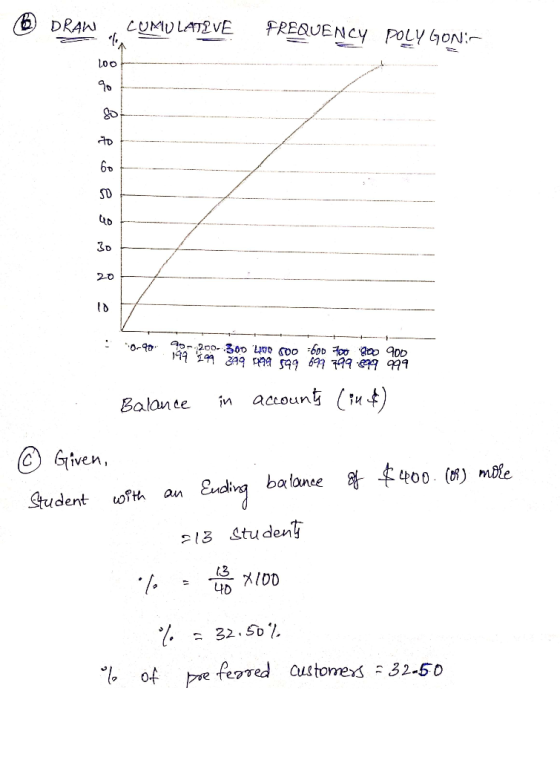 (b) DRAW CUMULATIVE FREQUENCY POLYGON:-
%
100
90
80
70
60
50
40
30
20
10
: 0-90 90-199 200-299 300-399 400-499 500-599 600-699 700-799 800-899 900-999
Balance in accounts (in $)
(C) Given,
Student with an Ending balance of $400. (or) more
=13 Students
% = 13/40 X100
% = 32.50%
% of preferred customers = 32.50